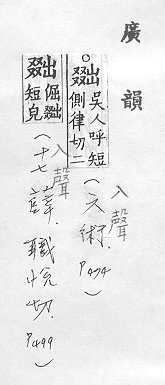 廣韻
吳人呼短
側律切二
(入聲 六術. P474)
短皃
(入聲 十七薛. 職悅切. P499)